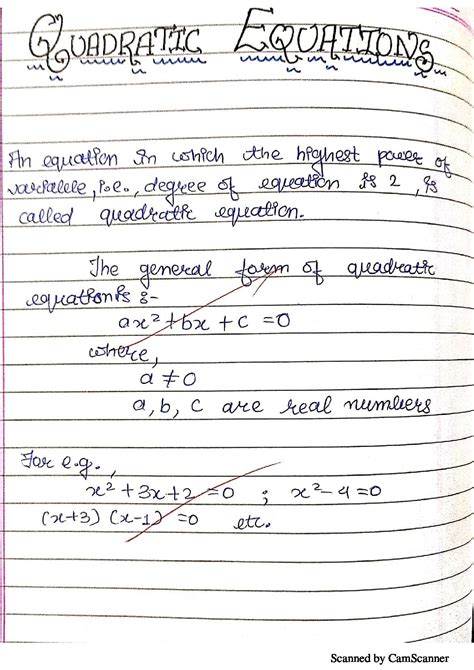 QUADRATIC EQUATIONS
An equation in which the highest power of
variable, i.e., degree of equation is 2, is
called quadratic equation.
The general form of quadratic
equation is :-
ax² + bx + c = 0
where,
a ≠ 0
a, b, c are real numbers
For e.g.,
x² + 3x + 2 = 0 ; x² - 4 = 0
(x+3) (x-1) = 0 etc.
Scanned by CamScanner